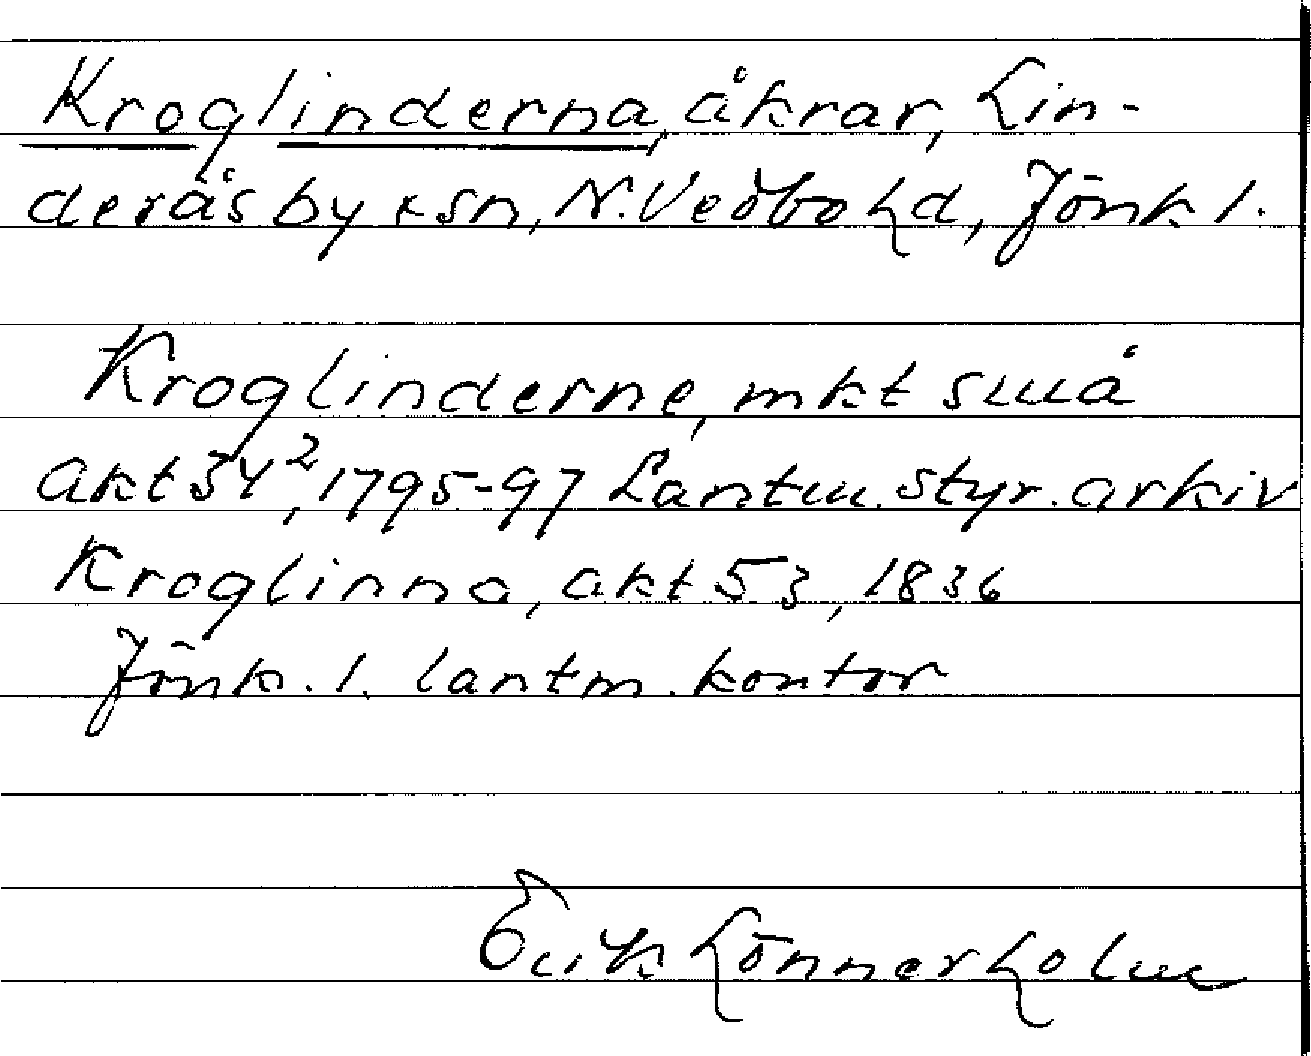 Kroglinderna, åkrar, Lin-
derås by + sn, N. Vedbo hd, Jönk l.
Kroglinderne, mkt små
akt 34², 1795-97 Lantm. styr. arkiv
Kroglinna, akt 53, 1836
Jönk. l. lantm. kontor
Erik Lönnerholm